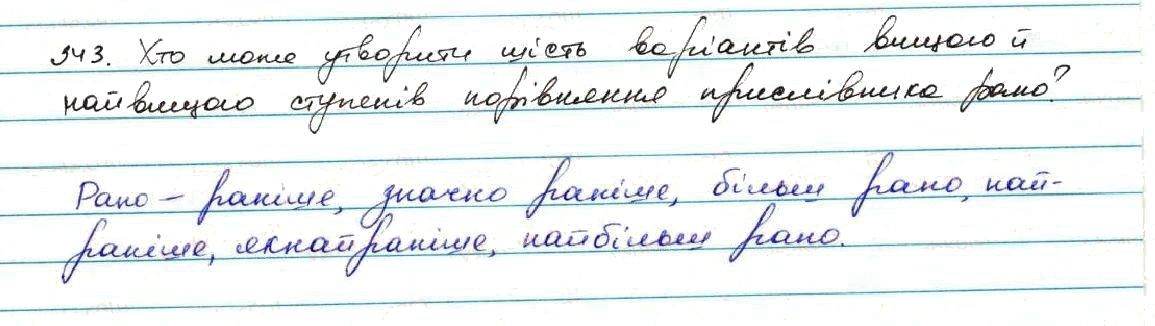 343. Хто може утворити шість варіантів вищого й
найвищого ступенів порівняння прислівника рано?
Рано – раніше, значно раніше, більш рано, най-
раніше, якнайраніше, найбільш рано.